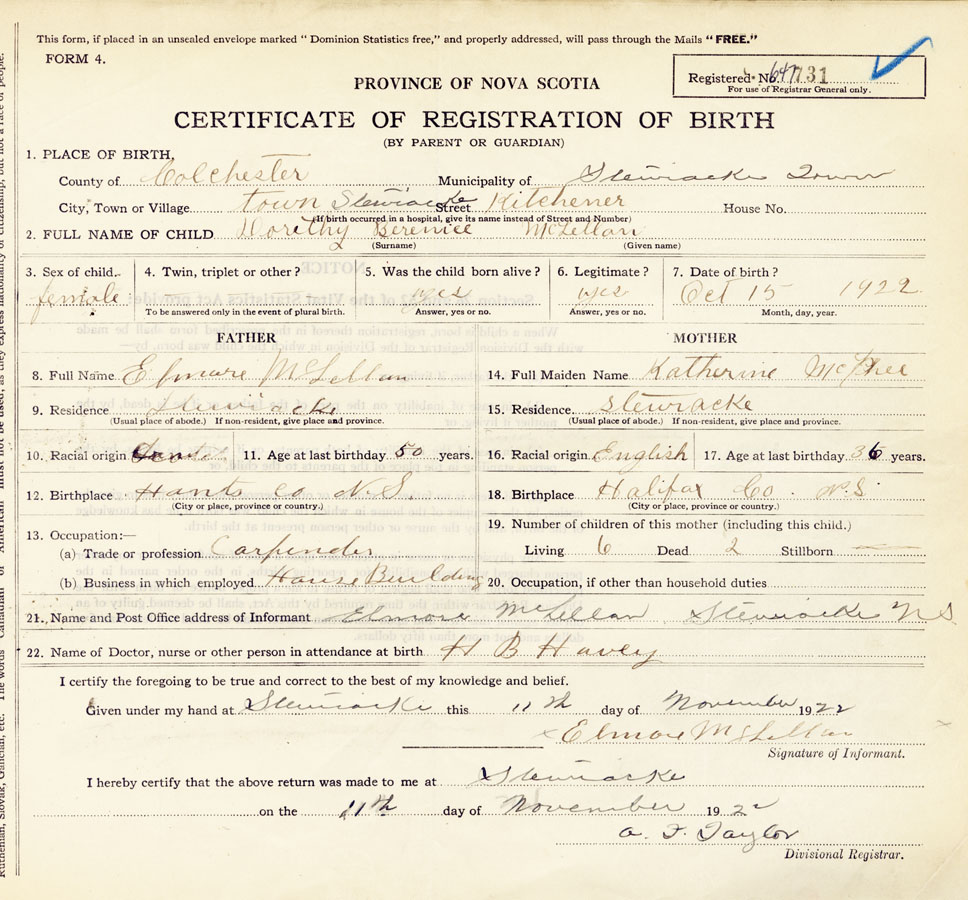 This form, if placed in an unsealed envelope marked " Dominion Statistics free," and properly addressed, will pass through the Mails "FREE."
FORM 4.
PROVINCE OF NOVA SCOTIA
Registered No. 731
For use of Registrar General only.
CERTIFICATE OF REGISTRATION OF BIRTH
(BY PARENT OR GUARDIAN)
1. PLACE OF BIRTH,
County of Colchester Municipality of Stewiacke Town
City, Town or Village town Stewiacke Street Kitchener House No.
(If birth occurred in a hospital, give its name instead of Street and Number)
2. FULL NAME OF CHILD Dorithy Berenice McLellan
(Surname) (Given name)
3. Sex of child. 4. Twin, triplet or other? 5. Was the child born alive? 6. Legitimate? 7. Date of birth?
female yes yes Oct 15 1922
To be answered only in the event of plural birth. Answer, yes or no. Answer, yes or no. Month, day, year.
FATHER MOTHER
8. Full Name Elmore McLellan 14. Full Maiden Name Katherine McPhee
9. Residence Stewiacke 15. Residence. Stewiacke
(Usual place of abode.) If non-resident, give place and province. (Usual place of abode.) If non-resident, give place and province.
10. Racial origin 11. Age at last birthday 50 years. 16. Racial origin English 17. Age at last birthday 36 years.
12. Birthplace Hants Co N.S. 18. Birthplace Halifax Co. N.S
(City or place, province or country.) (City or place, province or country.)
13. Occupation:— 19. Number of children of this mother (including this child.)
(a) Trade or profession Carpender Living 6 Dead 2 Stillborn —
(b) Business in which employed House Building 20. Occupation, if other than household duties
21. Name and Post Office address of Informant Elmore McLellan Stewiacke N S
22. Name of Doctor, nurse or other person in attendance at birth H B Havey
I certify the foregoing to be true and correct to the best of my knowledge and belief.
Given under my hand at Stewiacke this 11th day of November 1922
Elmore McLellan
Signature of Informant.
I hereby certify that the above return was made to me at Stewiacke
on the 11th day of November 1922
A. F. Taylor
Divisional Registrar.